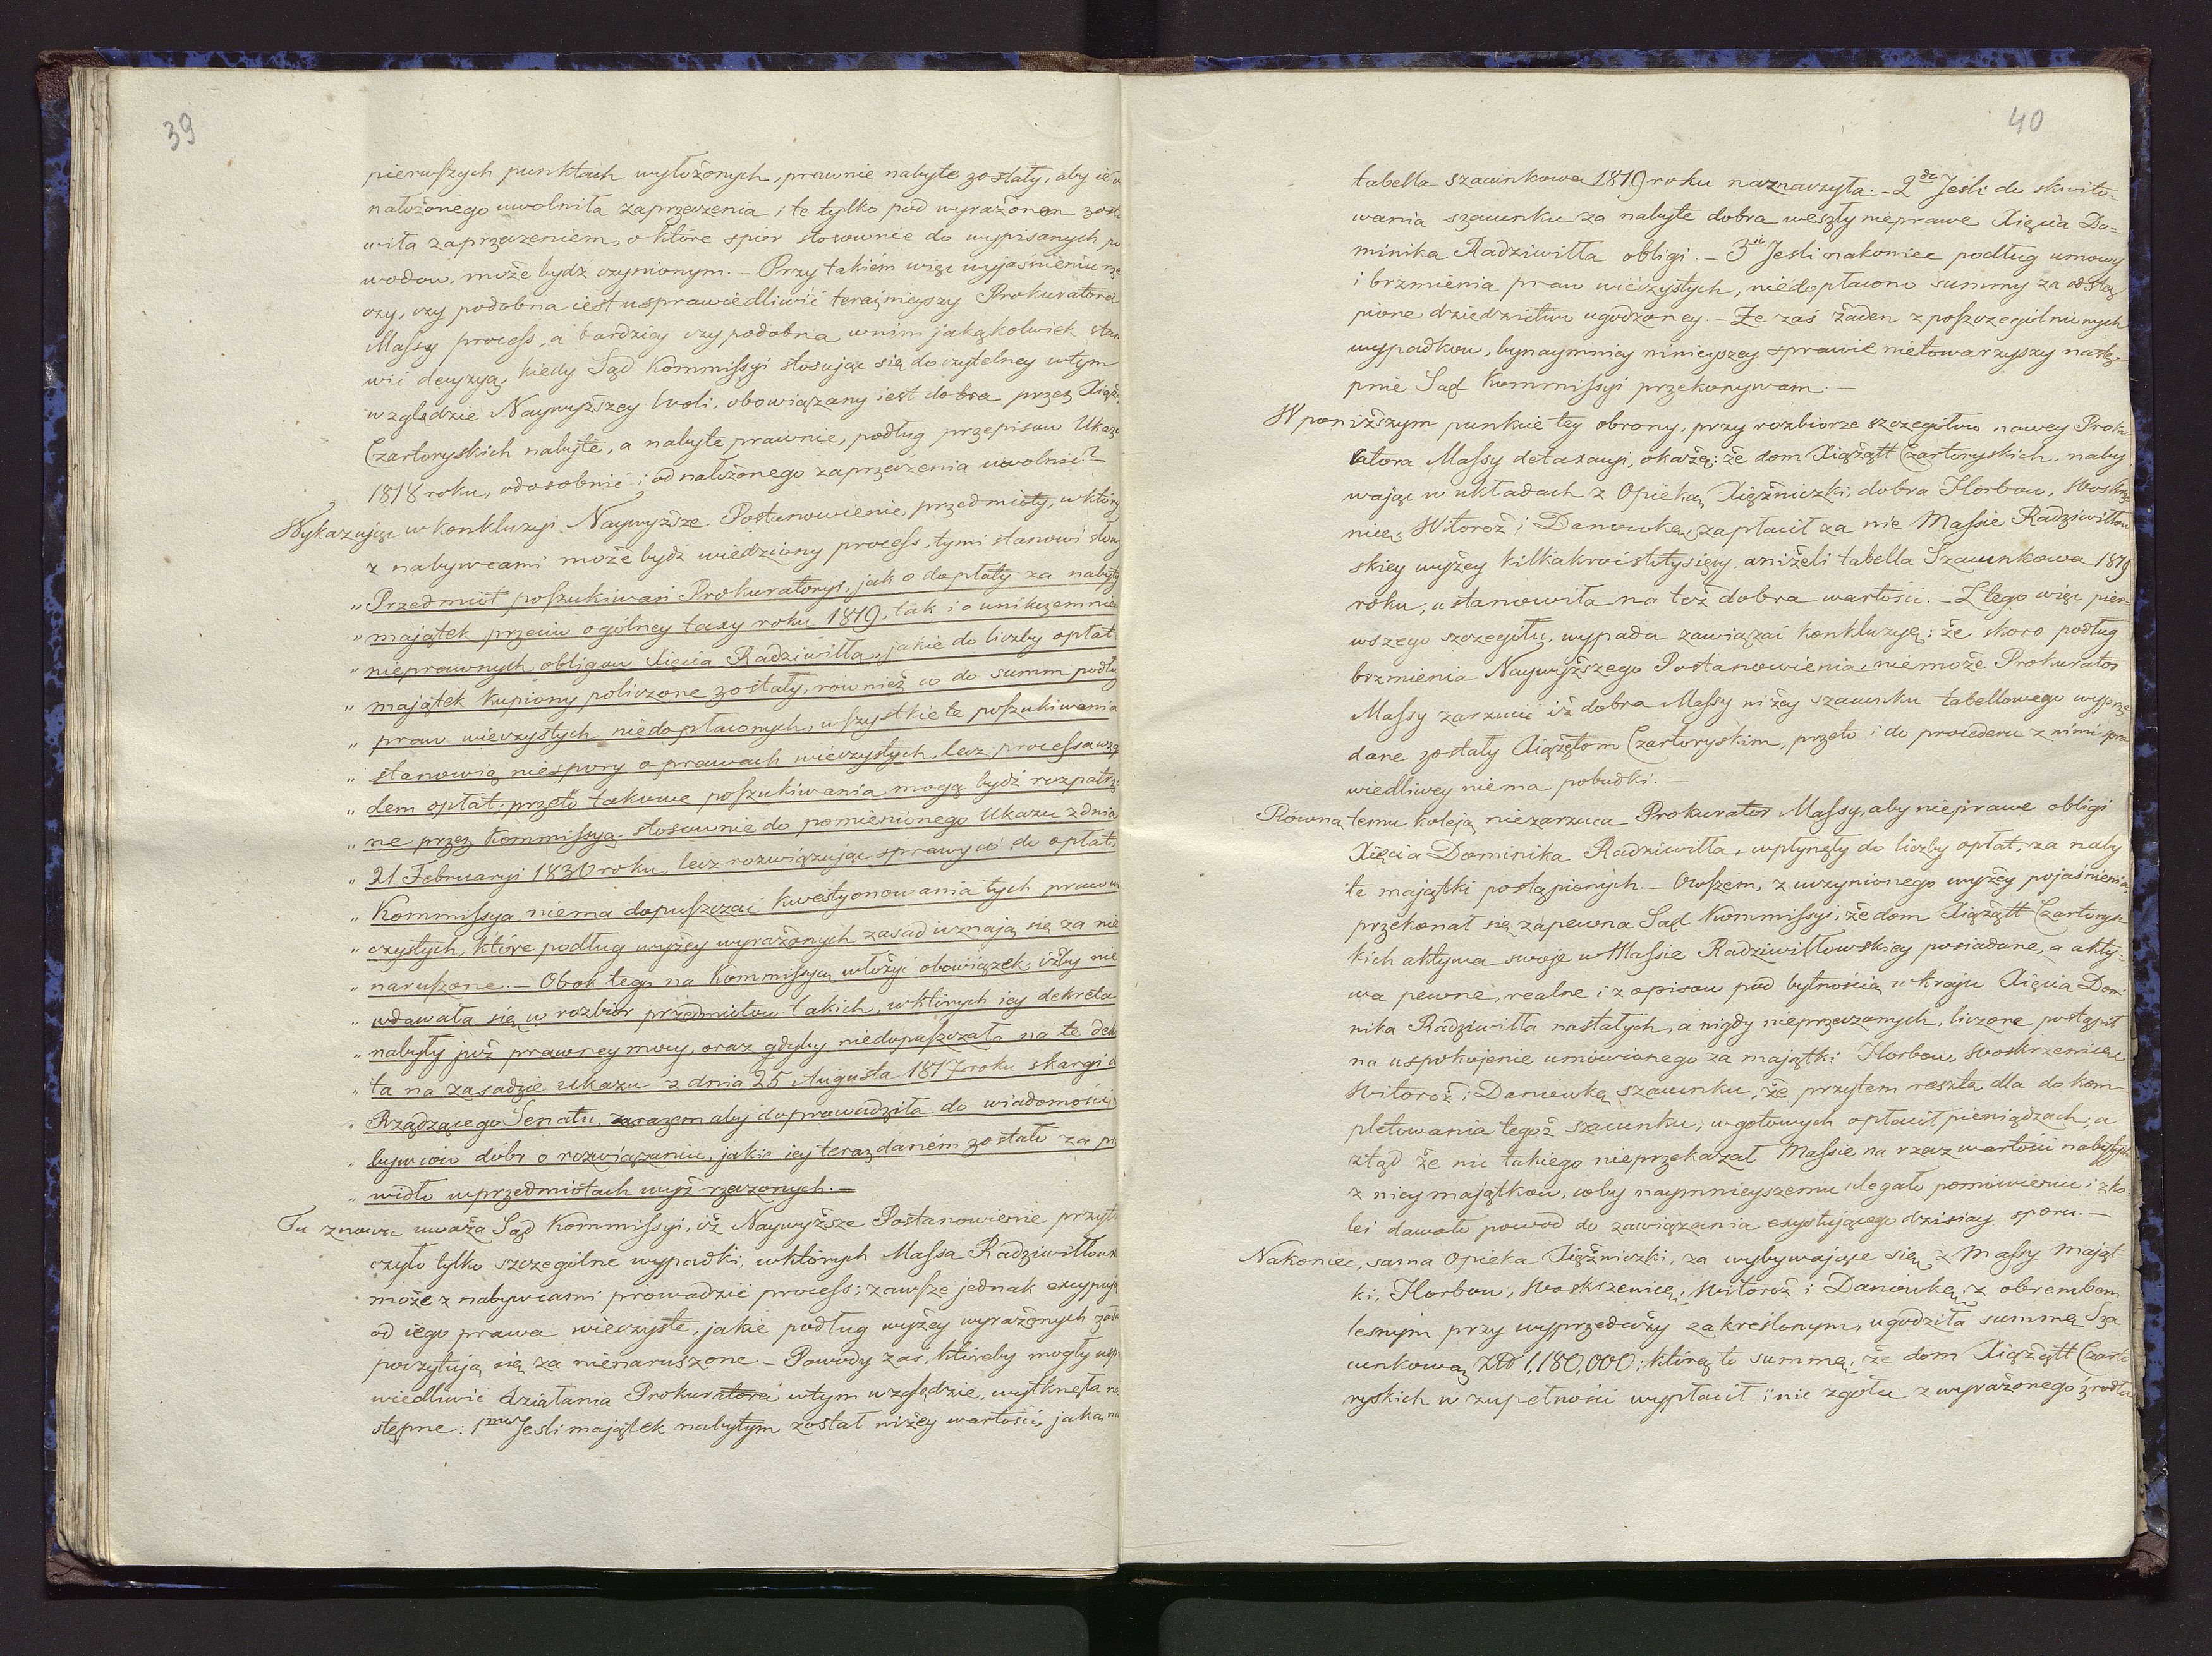 39
pierwszych punktach wyłożonych, prawnie nabyte zostały, aby ie
nałożonego uwolniła zaprzeczenia i te tylko pod wyrażonem zost
wiła zaprzeczeniem, o które spór stosownie do wypisanych po
wodow, może bydź czynionym. – Przy takiém więc wyjaśnieniu rze
czy, czy podobna iest usprawiedliwić teraźnieyszy Prokuratora
Massy process, a bardziey czy podobna w nim jakąkolwiek stan
wić decyzyą, kiedy Sąd Kommissyi stosując się do czytelney w tym
względzie Naywyższey Woli, obowiązany iest dobra przez Xiążąt
Czartoryskich nabyte, a nabyte prawnie, podług przepisow Ukazu
1818 roku, odosobnić i od nałożonego zaprzeczenia uwolnić? –
Wykazując w konkluzyi Naywyższe Postanowienie przedmioty, w który
z nabywcami może bydź wiedziony process, tymi stanowi słowy
„ Przedmiot poszukiwań Prokuratoryi, jak o dopłaty za nabyty
„ majątek przeciw ogólney taxy roku 1819, tak i o unikczemnie
„ nieprawnych obligow Xięcia Radziwiłła, jakie do liczby opłat
„ majątek kupiony policzone zostały, również co do summ podłu
„ praw wieczystych niedopłaconych, wszystkie te poszukiwania
„ stanowią niespory o prawach wieczystych, lecz processa wzg
„ dem opłat, przeto takowe poszukiwania mogą bydź rozpatrzo
„ ne przez Kommissyą stosownie do pomienionego Ukazu z dnia
„ 21 Februaryi 1830 roku, lecz rozwiązując sprawy co do opłat,
„ Kommissya niema dopuszczać kwestyonowania tych praw w
„ czystych, które podług wyżey wyrażonych zasad uznają się za nie
„ naruszone. – Obok tego na Kommissyą włożyć obowiązek, iżby nie
„ wdawała się w rozbior przedmiotow takich, w których iey dekreta
„ nabyły już prawney mocy, oraz gdyby niedopuszczała na te dek
„ ta na zasadzie Ukazu z dnia 25 Augusta 1817 roku skargi d
„ Rządzącego Senatu, zarazem aby doprowadziła do wiadomości
„ bywcow dóbr o rozwiązaniu, jakie iey teraz daném zostało za pr
„ widło w przedmiotach wyż rzeczonych. –
Tu znowu uważa Sąd Kommissyi, iż Naywyższe Postanowienie przyto
czyło tylko szczególne wypadki, w których Massa Radziwiłłowsk
może z nabywcami prowadzić process; zawsze jednak excypuje
od iego prawa wieczyste, jakie podług wyżey wyrażonych zasad
poczytują się za nienaruszone – Powody zaś, któreby mogły uspr
wiedliwić działania Prokuratora w tym względzie, wytknęła na
stępne: 1mo Jesli majątek nabytym został niżey wartości, jaką na
40
tabella szacunkowa 1819 roku naznaczyła. – 2do Jeśli do skwito-
wania szacunku za nabyte dobra weszły nieprawe Xięcia Do-
minika Radziwiłła obligi. – 3io Jesli nakoniec podług umowy
i brzmienia praw wieczystych, niedopłacono summy za odstą
pione dziedzictwo ugodzoney. – Że zaś żaden z poszczególnionych
wypadkow, bynaymniey ninieyszey sprawie nietowarzyszy nastę-
pnie Sąd Kommissyi przekonywam. –
W poniższym punkcie tey obrony, przy rozbiorze szczegółow nowey Proku
ratora Massy detaxacyi, okażę: że dom Xiążąt Czartoryskich, naby
wając w układach z Opieką Xiężniczki, dobra Horbow, Woskrze
nicę, Witoroż i Danowkę, zapłacił za nie Massie Radziwiłłow
skiey wyżey kilkakroć sto tysięcy, aniżeli tabella Szacunkowa 1819
roku, ustanowiła na toż dobra wartości. – Z tego więc pier-
wszego szczegółu, wypada zawiązać konkluzyę: że skoro podług
brzmienia Naywyższego Postanowienia, niemoże Prokurator
Massy zarzucić iż dobra Massy niżey szacunku tabellowego wyprze
dane zostały Xiążętom Czartoryskim, przeto i do procederu z nimi spra
wiedliwey niema pobudki. –
Rowną temu koleją niezarzuca Prokurator Massy, aby nieprawe obligi
Xięcia Dominika Radziwiłła, wpłynęły do liczby opłat, za naby
te majątki postąpionych. – Owszem, z uczynionego wyżey pojaśnienia,
przekonał się zapewna Sąd Kommissyi, że dom Xiążąt Czartorys
kich aktywa swoje w Massie Radziwiłłowskiey posiadane, a akty-
wa pewne, realne i z opisow pod bytnością w kraju Xięcia Domi
nika Radziwiłła nastałych, a nigdy nieprzeczonych, liczone postąpił
na uspokojenie umówionego za majątki Horbow, Woskrzenicę
Witoroż i Danowkę szacunku, że przytem resztę dla dokom
pletowania tegoż szacunku, w gotowych opłacił pieniądzach; a
ztąd że nic takiego nieprzekazał Massie na rzecz wartości nabytych
z niey majątkow, coby naymnieyszemu ulegało pomówieniu i z ko-
lei dawało powod do zawiązania exystującego dzisiay sporu. –
Nakoniec, sama Opieka Xiężniczki, za wybywające się z Massy mająt-
ki, Horbow, Woskrzenicę, Witoroż i Danowkę, z obrembem
lesnym przy wyprzedaży zakreślonym, ugodziła summę Sza
cunkową złp 1,180,000; którą to summę, że dom Xiążąt Czarto
ryskich w zupełności wypłacił i nic zgoła z wyrażonego źródła